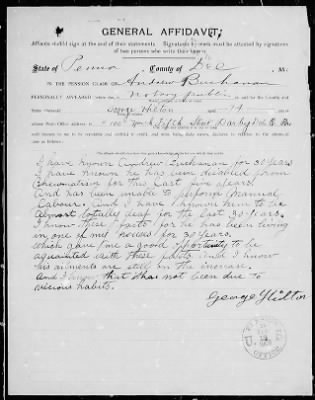 GENERAL AFFIDAVIT.
Affiants should sign at the end of their statements. Signatures by mark must be attested by signatures
of two persons who write their names.
State of Penna, County of Del, ss:
IN THE PENSION CLAIM of Andrew Buchanan
PERSONALLY APPEARED before me, a Notary public in and for the County and
George Hilton 74
whose Post Office address is Darby
I have known Andrew Buchanan for 30 years
I have known he has been disabled from
Rheumatism for this last five years.
And has been unable to perform Manual
Labour. And I have known him to be
Almost totally deaf for the last 30 years.
I know these facts for he has been living
in one of my houses for 30 years.
which gave me a good opportunity to be
aquainted with these facts and I know
his ailments are still on the increase.
And I know that it has not been due to
vicious habits.
George Hilton